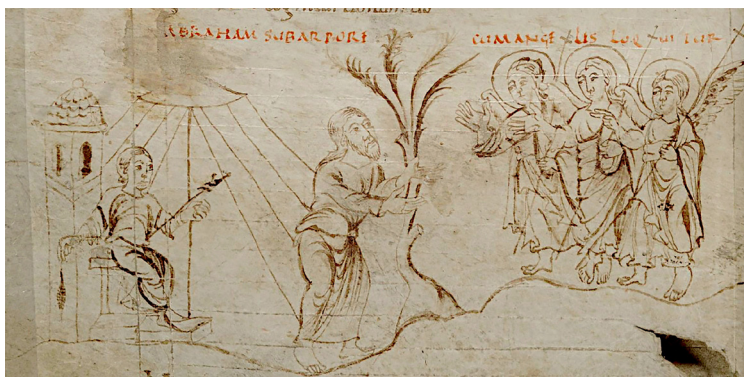 ABRAHAM SUB ARBORE
CUM ANGELIS LOQUITUR